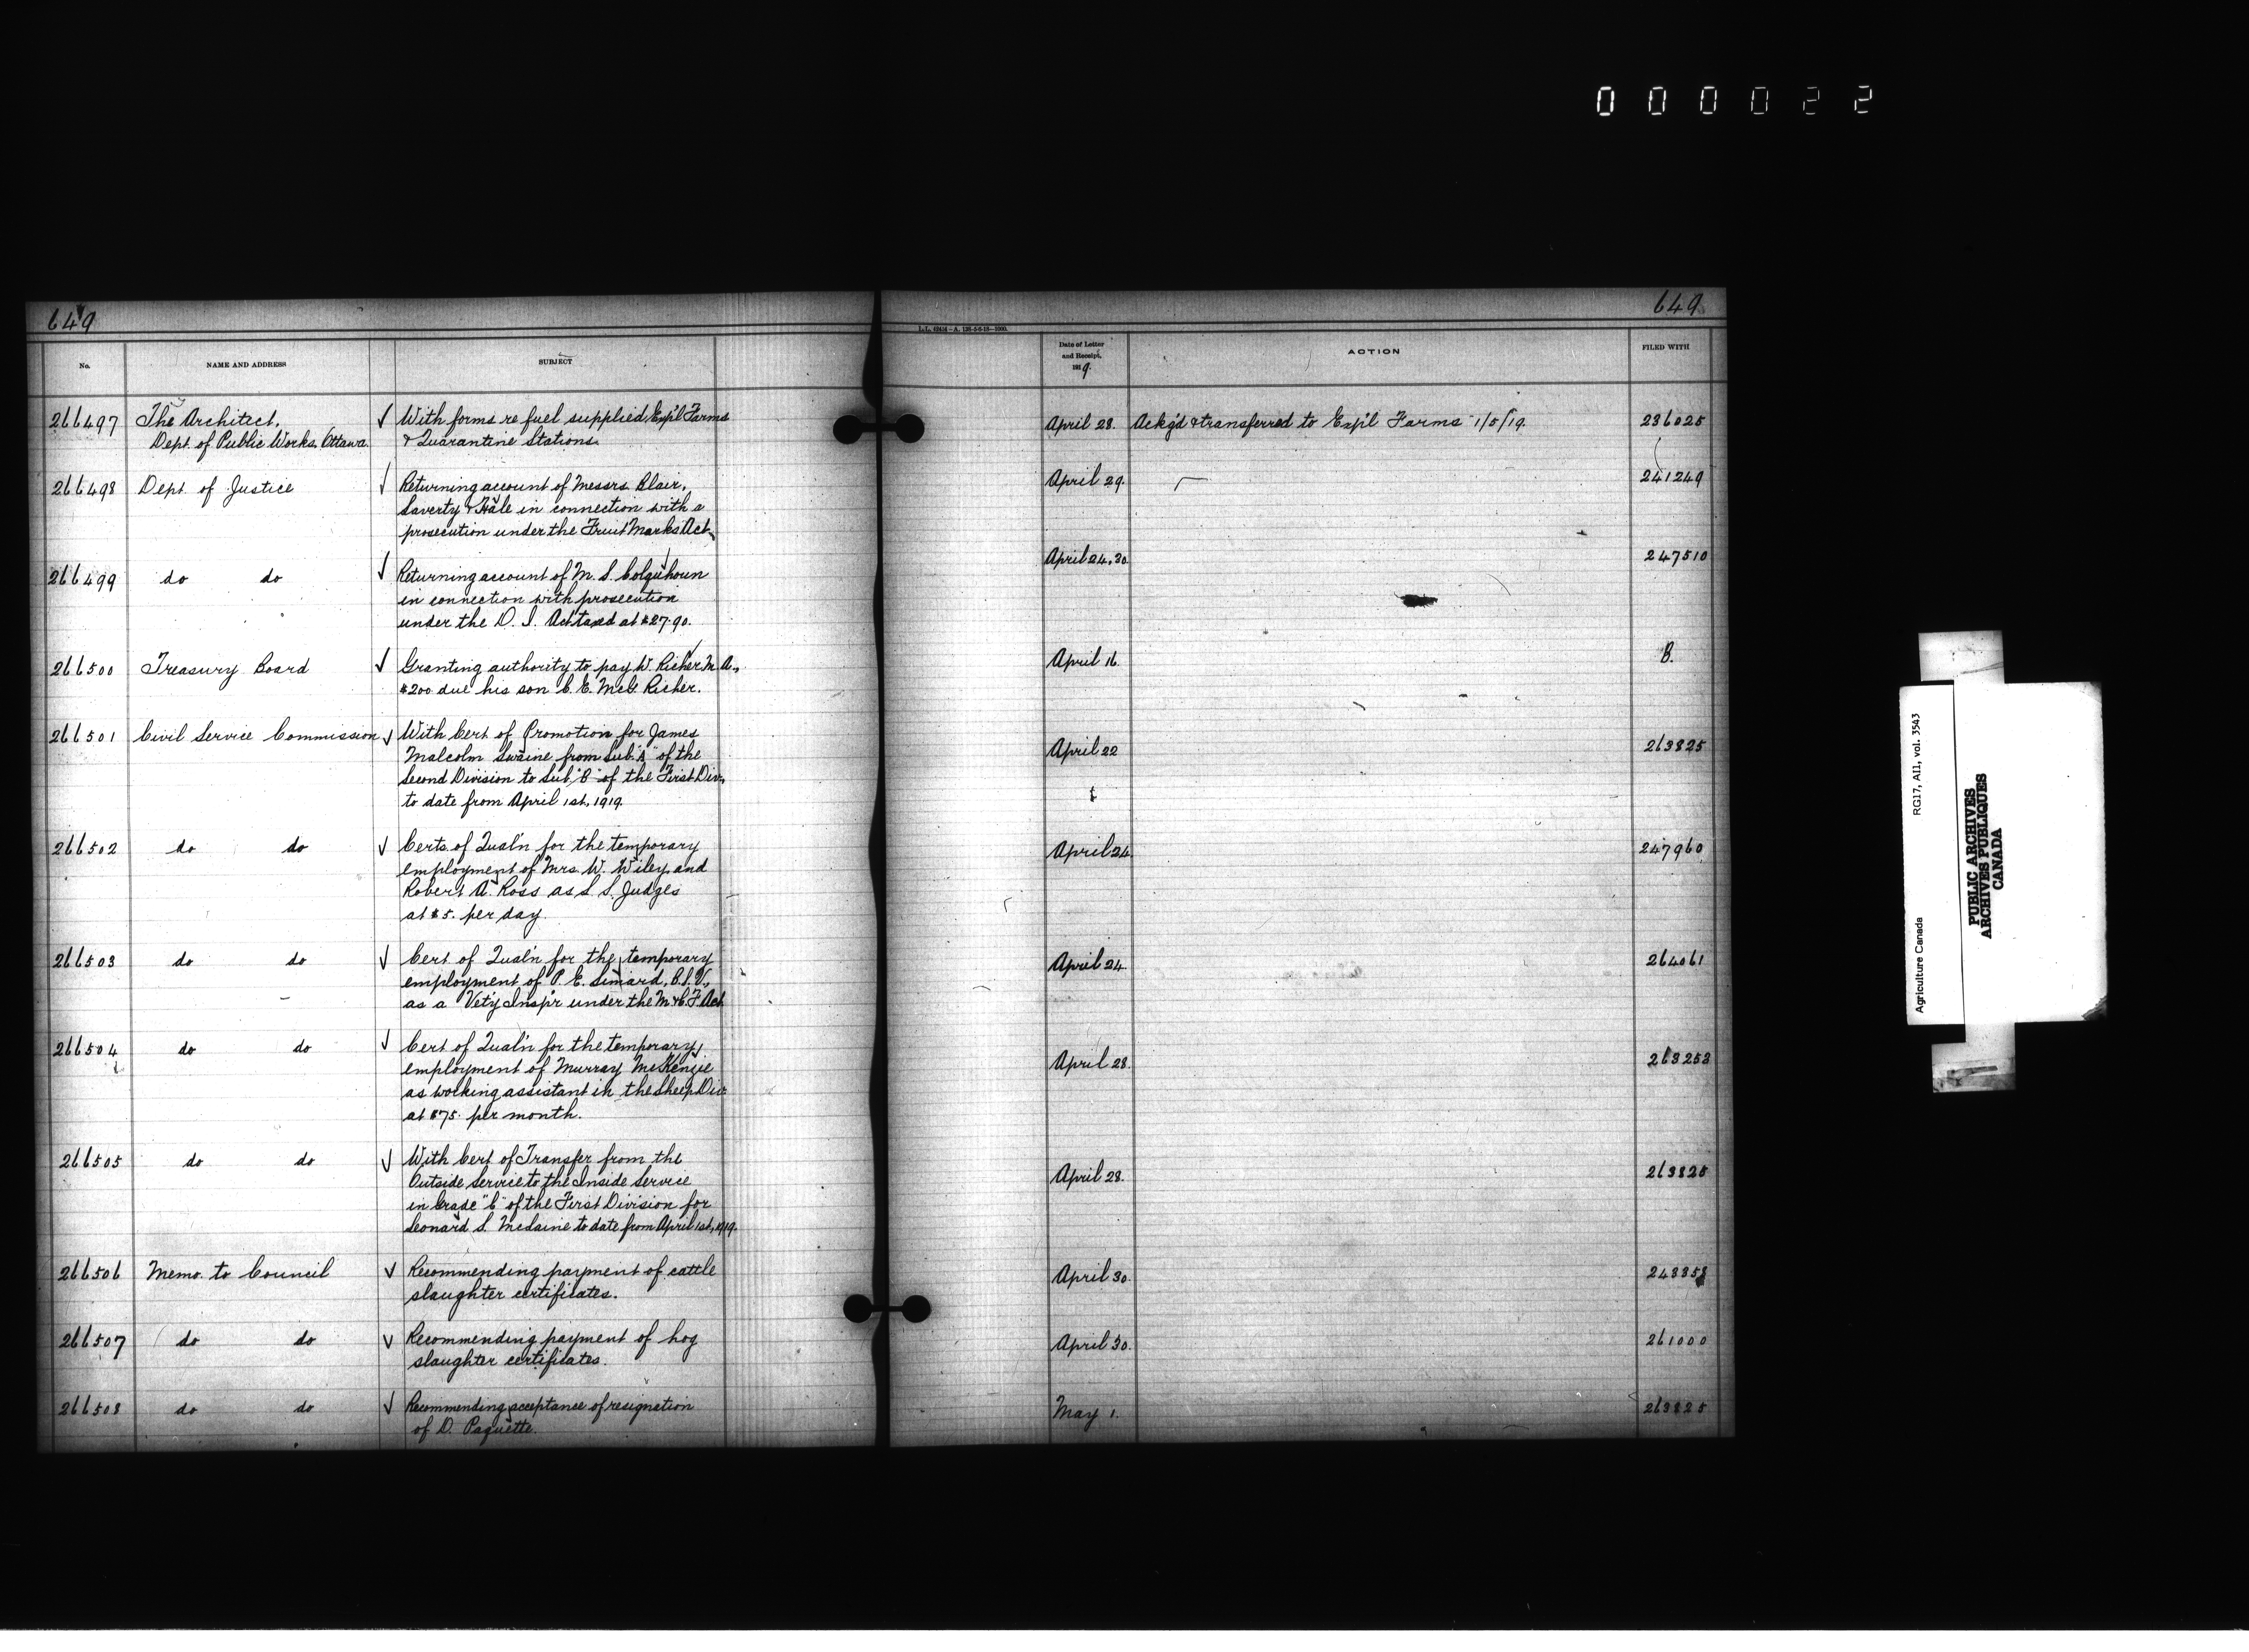 000022
649
649
L.L. 42414—A. 126-5-6-18—1000.
No.
NAME AND ADDRESS
SUBJECT
Date of Letter
and Receipt.
1919.
ACTION
FILED WITH
266497 The Architect, ✓ With forms re fuel supplied Exp'l Farms April 28. Ackg'd & transferred to Exp'l Farms 1/5/19. 236025
Dept. of Public Works, Ottawa. & Quarantine Stations.
266498 Dept. of Justice ✓ Returning account of Messrs. Blair, April 29. 241249
Laverty & Hale in connection with a
prosecution under the Fruit Marks Act.
266499 do do ✓ Returning account of M. S. Colquhoun April 24, 30. 247510
in connection with prosecution
under the D. I. Act taxed at $27.90.
266500 Treasury Board ✓ Granting authority to pay W. Richer, M.A., April 16. B.
$200 due his son C. E. McG. Richer.
266501 Civil Service Commission ✓ With Cert of Promotion for James April 22 263825
Malcolm Swaine from Sub. "A" of the
Second Division to Sub. "B" of the First Div.,
to date from April 1st, 1919.
266502 do do ✓ Certs. of Qual'n for the temporary April 24. 247960
employment of Mrs. W. Wiley and
Robert A. Ross as S. S. Judges
at $5. per day.
266503 do do ✓ Cert of Qual'n for the temporary April 24. 264061
employment of P. E. Simard, B.S.V.,
as a Vet'y Insp'r under the M. & C. F. Act
266504 do do ✓ Cert of Qual'n for the temporary April 28. 263253
employment of Murray McKenzie
as working assistant in the Sheep Div.
at $75. per month.
266505 do do ✓ With Cert of Transfer from the April 28. 263825
Outside Service to the Inside Service
in Grade "C" of the First Division for
Leonard S. McLaine to date from April 1st, 1919.
266506 Memo. to Council ✓ Recommending payment of cattle April 30. 243358
slaughter certificates.
266507 do do ✓ Recommending payment of hog April 30. 261000
slaughter certificates.
266508 do do ✓ Recommending acceptance of resignation May 1. 263825
of D. Paquette.
Agriculture Canada RG17, AII, vol. 3543
PUBLIC ARCHIVES
ARCHIVES PUBLIQUES
CANADA